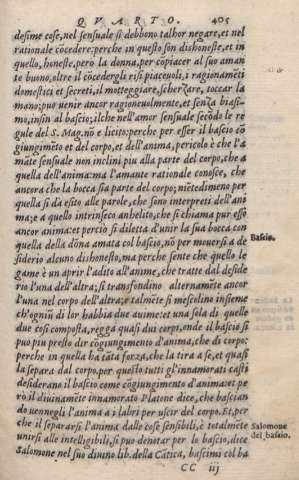 QVARTO. 405
desime cose, nel sensuale si debbono talhor negare, et nel
rationale cõcedere: perche in questo son dishoneste, et in
quello, honeste. però la donna, per cõpiacer al suo aman
te buono, oltre il cõcedergli risi piaceuoli, i ragionamẽti
domestici et secreti, il motteggiare, scherzare, toccar la
mano; puo uenir ancor ragioneuolmente, et senza biasi-
mo, insin al bascio; ilche nell'amor sensuale secõdo le re
gule del S. Mag. nõ e licito: perche per esser il bascio cõ
giungimẽto et del corpo, et dell'anima, pericolo è che l'a
mãte sensuale non inclini piu alla parte del corpo, che a
quella dell'anima: ma l'amante rationale conosce, che
ancora che la bocca sia parte del corpo; niẽtedimeno per
quella si dà esito alle parole, che sono interpreti dell'ani
ma; e a quello intrinseco anhelito, che si chiama pur essò
ancor anima: et perciò si diletta d'unir la sua bocca con
quella della dõna amata col bascio, nõ per mouersi a de
siderio alcuno dishonesto, ma perche sente che quello le
game è un aprir l'adito all'anime, che tratte dal deside
rio l'una dell'altra; si transfondino alternamẽte ancor
l'una nel corpo dell'altra; e talmẽte si mescolino insieme
ch'ogniũ di lor habbia due anime: et una sola di quelle
due cosi composta, regga quasi dui corpi, onde il bascio si
puo piu presto dir cõgiungimento d'anima, che di corpo:
perche in quella ha tãta forza, che la tira a se, et quasi
la separa dal corpo. per questo tutti gl'innamorati casti
desiderano il bascio come cõgiungimento d'anima: et pe
rò il diuinamẽte innamorato Platone dice, che bascian
do uennegli l'anima a i labri per uscir del corpo. Et, per
che il separarsi l'anima dalle cose sensibili, e totalmẽte
unirsi alle intelligibili, si puo denotar per lo bascio, dice
Salomone nel suo diuino lib. della Cãtica, bascimi col ba
CC iij
Bascio.
Salomone
del bascio.